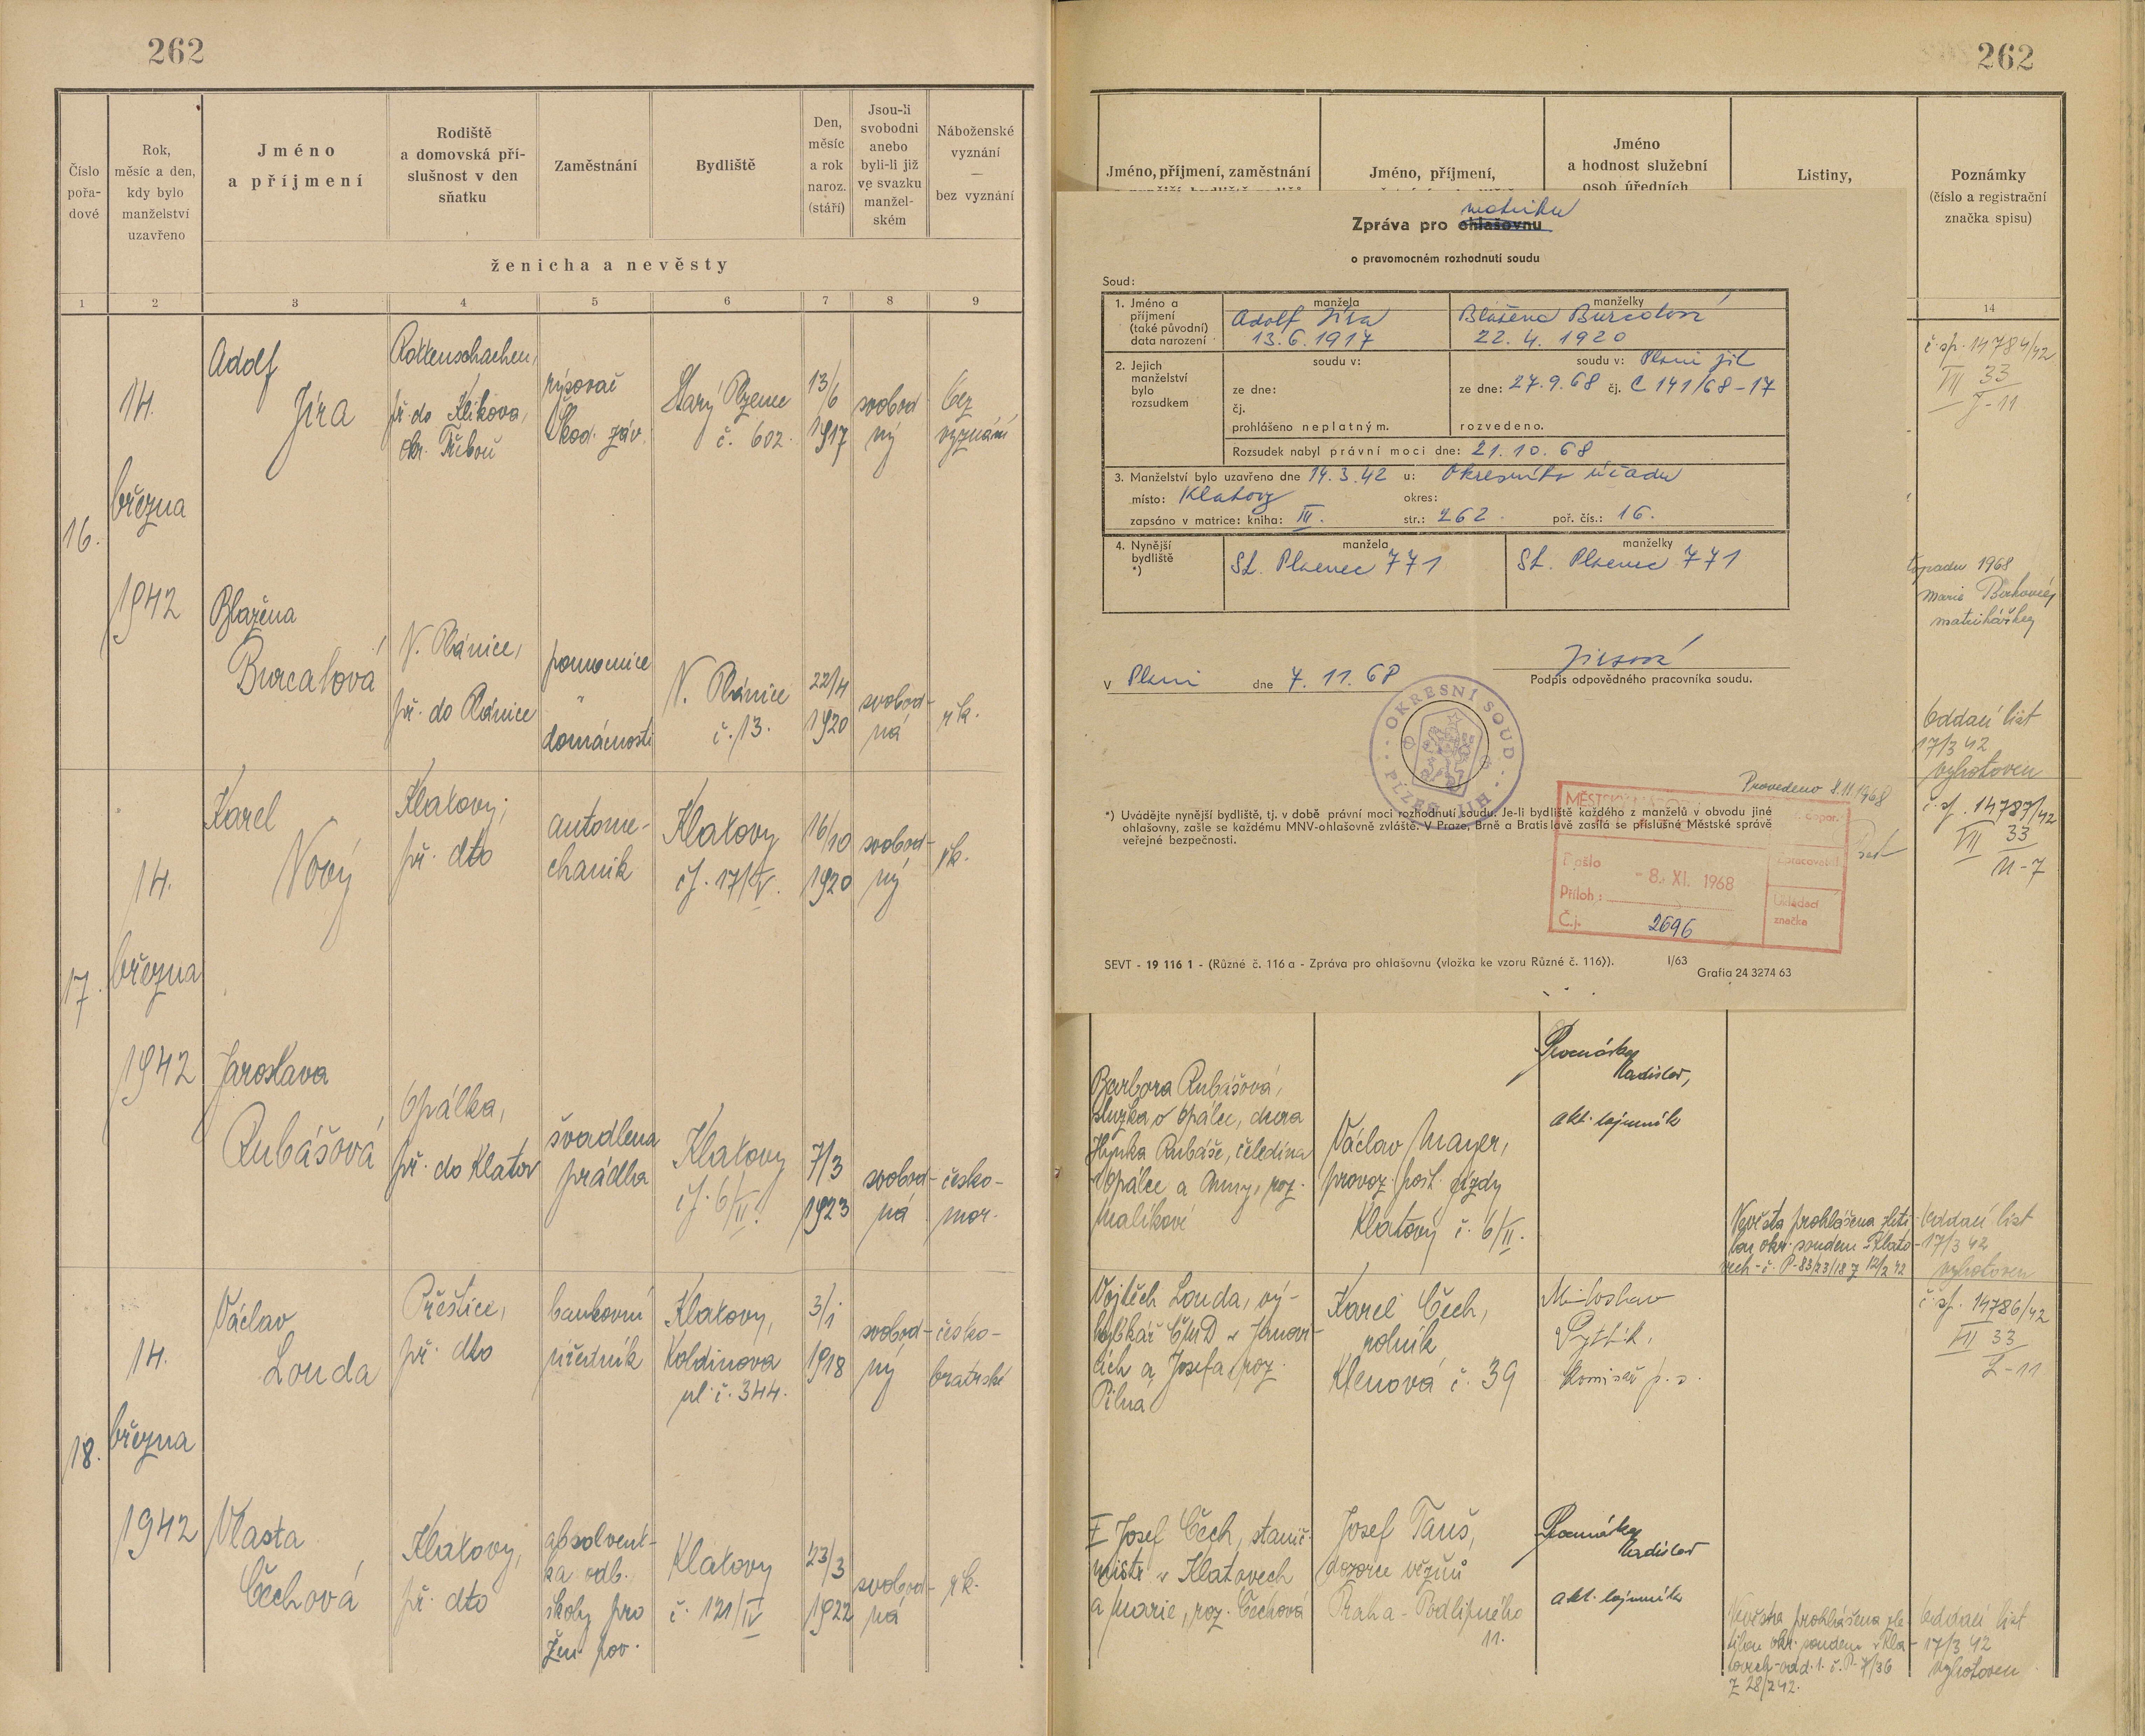 262
Číslo pořa- dové
Rok, měsíc a den, kdy bylo manželství uzavřeno
Jméno a příjmení
Rodiště a domovská pří- slušnost v den sňatku
Zaměstnání
Bydliště
Den, měsíc a rok naroz. (stáří)
Jsou-li svobodni anebo byli-li již ve svazku manžel- ském
Náboženské vyznání — bez vyznání
ženicha a nevěsty
1 2 3 4 5 6 7 8 9
16.
14.
března
1942
Adolf
Jíra
Rottenschachen,
př. do Klikova,
okr. Třeboň
rýsovač
Škod. záv.
Starý Plzenec
č. 602.
13/6
1917
svobod
ný
bez
vyznání
Blažena
Burcalová
N. Plánice,
př. do Plánice
pomocnice
v
domácnosti
N. Plánice
č. 13.
22/4
1920
svobod-
ná
řk.
17.
14.
března
1942
Karel
Nový
Klatovy;
př. dto
autome-
chanik
Klatovy
čp. 17/IV.
16/10
1920
svobod-
ný
řk.
Jaroslava
Rubášová
Opálka,
př. do Klatov
švadlena
prádla
Klatovy
čp. 6/II.
7/3
1923
svobod-
ná
česko-
mor.
18.
14.
března
1942
Václav
Louda
Přeštice,
př. dto
bankovní
úředník
Klatovy,
Koldinova
ul. č. 344.
3/1
1918
svobod-
ný
česko-
bratrské
Vlasta
Čechová
Klatovy,
př. dto
absolvent-
ka odb.
školy pro
žen. pov.
Klatovy
č. 121/IV
23/3
1922
svobod-
ná
řk.
262
Jméno, příjmení, zaměstnání
Jméno, příjmení,
Jméno
a hodnost služební
osob úředních
Listiny,
Poznámky
(číslo a registrační
značka spisu)
14
matriku
Zpráva pro ohlašovnu
o pravomocném rozhodnutí soudu
Soud:
1. Jméno a příjmení (také původní) data narození
manžela
Adolf Jíra
13.6.1917
manželky
Blažena Burcalová
22.4.1920
2. Jejich manželství bylo rozsudkem
soudu v:
ze dne:
čj.
prohlášeno neplatným.
soudu v: Plzni jih
ze dne: 27.9.68 čj. C 141/68-17
rozvedeno.
Rozsudek nabyl právní moci dne: 21.10.68
3. Manželství bylo uzavřeno dne 14.3.42 u: Okresního úřadu
místo: Klatovy okres:
zapsáno v matrice: kniha: III. str.: 262. poř. čís.: 16.
4. Nynější bydliště *)
manžela
St. Plzenec 771
manželky
St. Plzenec 771
v Plzni dne 7.11.68
Podpis odpovědného pracovníka soudu.
OKRESNÍ SOUD PLZEŇ JIH
Provedeno 8.11.1968
*) Uvádějte nynější bydliště, tj. v době právní moci rozhodnutí soudu. Je-li bydliště každého z manželů v obvodu jiné
ohlašovny, zašle se každému MNV-ohlašovně zvláště. V Praze, Brně a Bratislavě zasílá se příslušné Městské správě
veřejné bezpečnosti.
Došlo - 8. XI. 1968
Zpracovatel
Příloh:
Č.j. 2696
Ukládací značka
SEVT - 19 116 1 - (Různé č. 116 a - Zpráva pro ohlašovnu (vložka ke vzoru Různé č. 116)). I/63
Grafia 24 3274 63
č. sp. 14784/42
VII 33
J-11
1968
matrikářky
Oddací list
17/3 42
vyhotoven
č. sp. 14787/42
VII 33
N-7
Barbora Rubášová,
služka v Opálce, dcera
Hynka Rubáše, čeledína
v Opálce a Anny, roz.
Malíkové
Václav Mayer,
provoz. pošt. jízdy
Klatovy č. 6/II.
Ladislav,
akt. tajemník
Nevěsta prohlášena zleti-
lou okr. soudem v Klato-
vech - č. P-83/23/187 12/2 42
Oddací list
17/3 42
vyhotoven
Vojtěch Louda, vý-
hybkář ČMD v Janovi-
cích a Josefa, roz.
Pilná
Karel Čech,
rolník
Klenová č. 39
Miloslav
Pytlík,
komisař p. s.
č. sp. 14786/42
VII 33
L-11
Josef Čech, stanič.
mistr v Klatovech
a Marie, roz. Čechová
Josef Tauš,
dozorce vězňů
Praha - Podlipného
11.
Ladislav
akt. tajemník
Nevěsta prohlášena zle-
tilou okr. soudem v Kla-
tovech - odd. 1. č. P-7/36
z 28/2 42.
Oddací list
17/3 42
vyhotoven